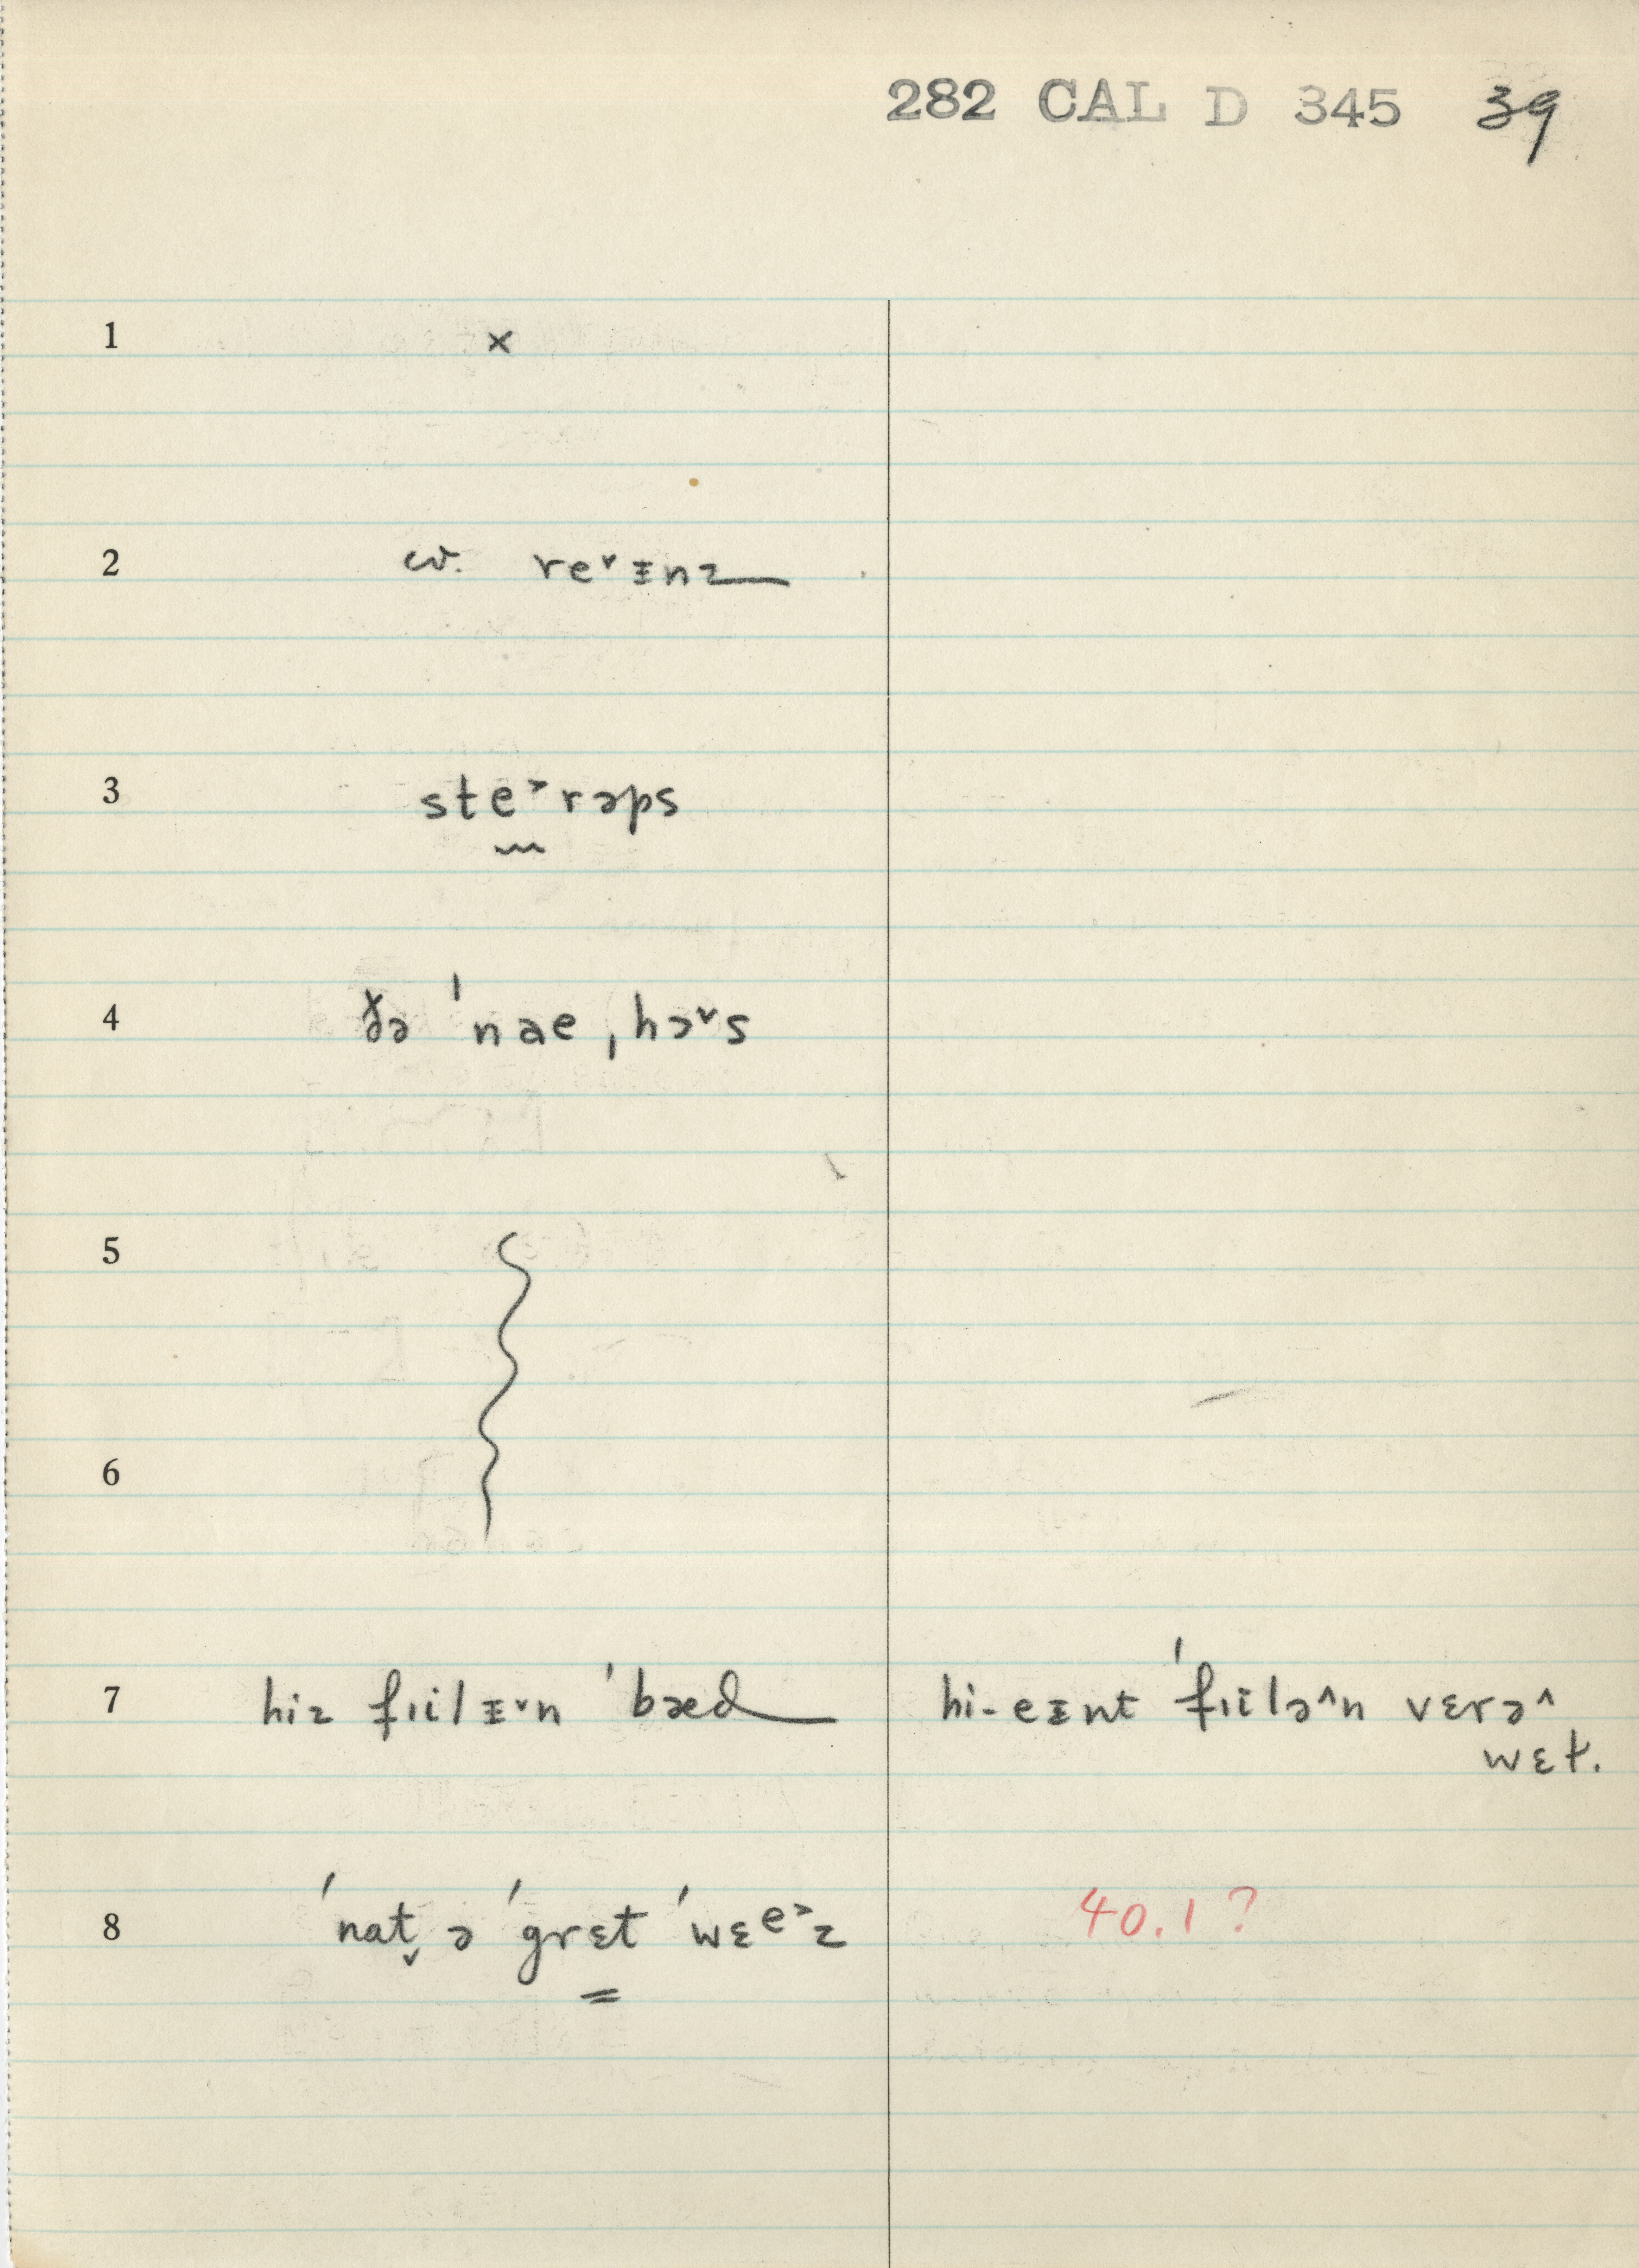 282 CAL D 345 39
1 ×
2 cv. re˅ᵻnz
3 ste˃rəps
4 ðə ˈnae ˌhɔ˅s
5
6
7 hiz fɪilᵻ˅n ˈbæd hi-eᵻnt ˈfɪilə˄n vɛrə˄
wɛt.
8 ˈnat̬ ə ˈgrɛt ˈwɛe˃z 40.1?